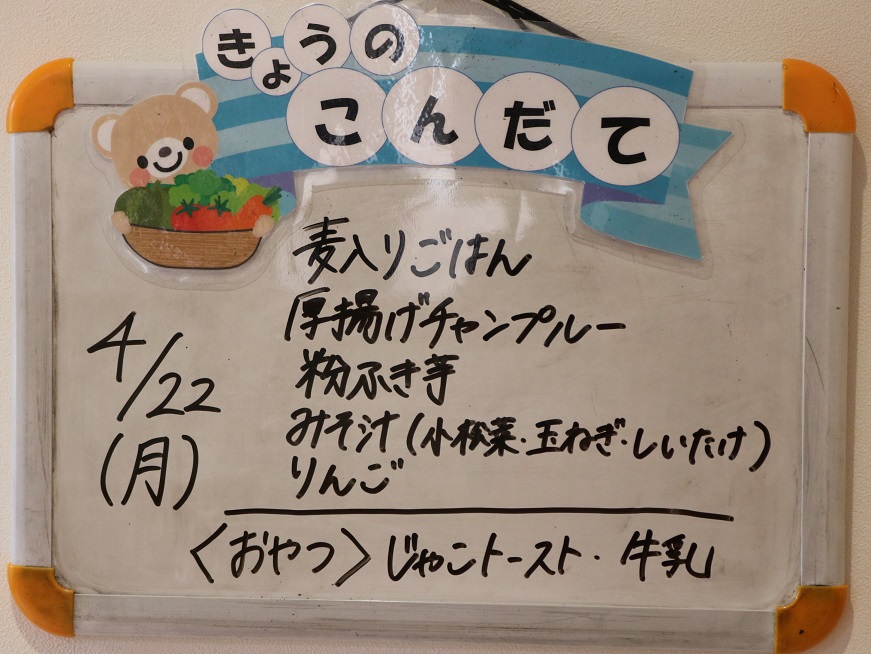 きょうの
こんだて
麦入りごはん
厚揚げチャンプルー
粉ふき芋
4/22
みそ汁(小松菜・玉ねぎ・しいたけ)
(月)
りんご
〈おやつ〉じゃこトースト・牛乳